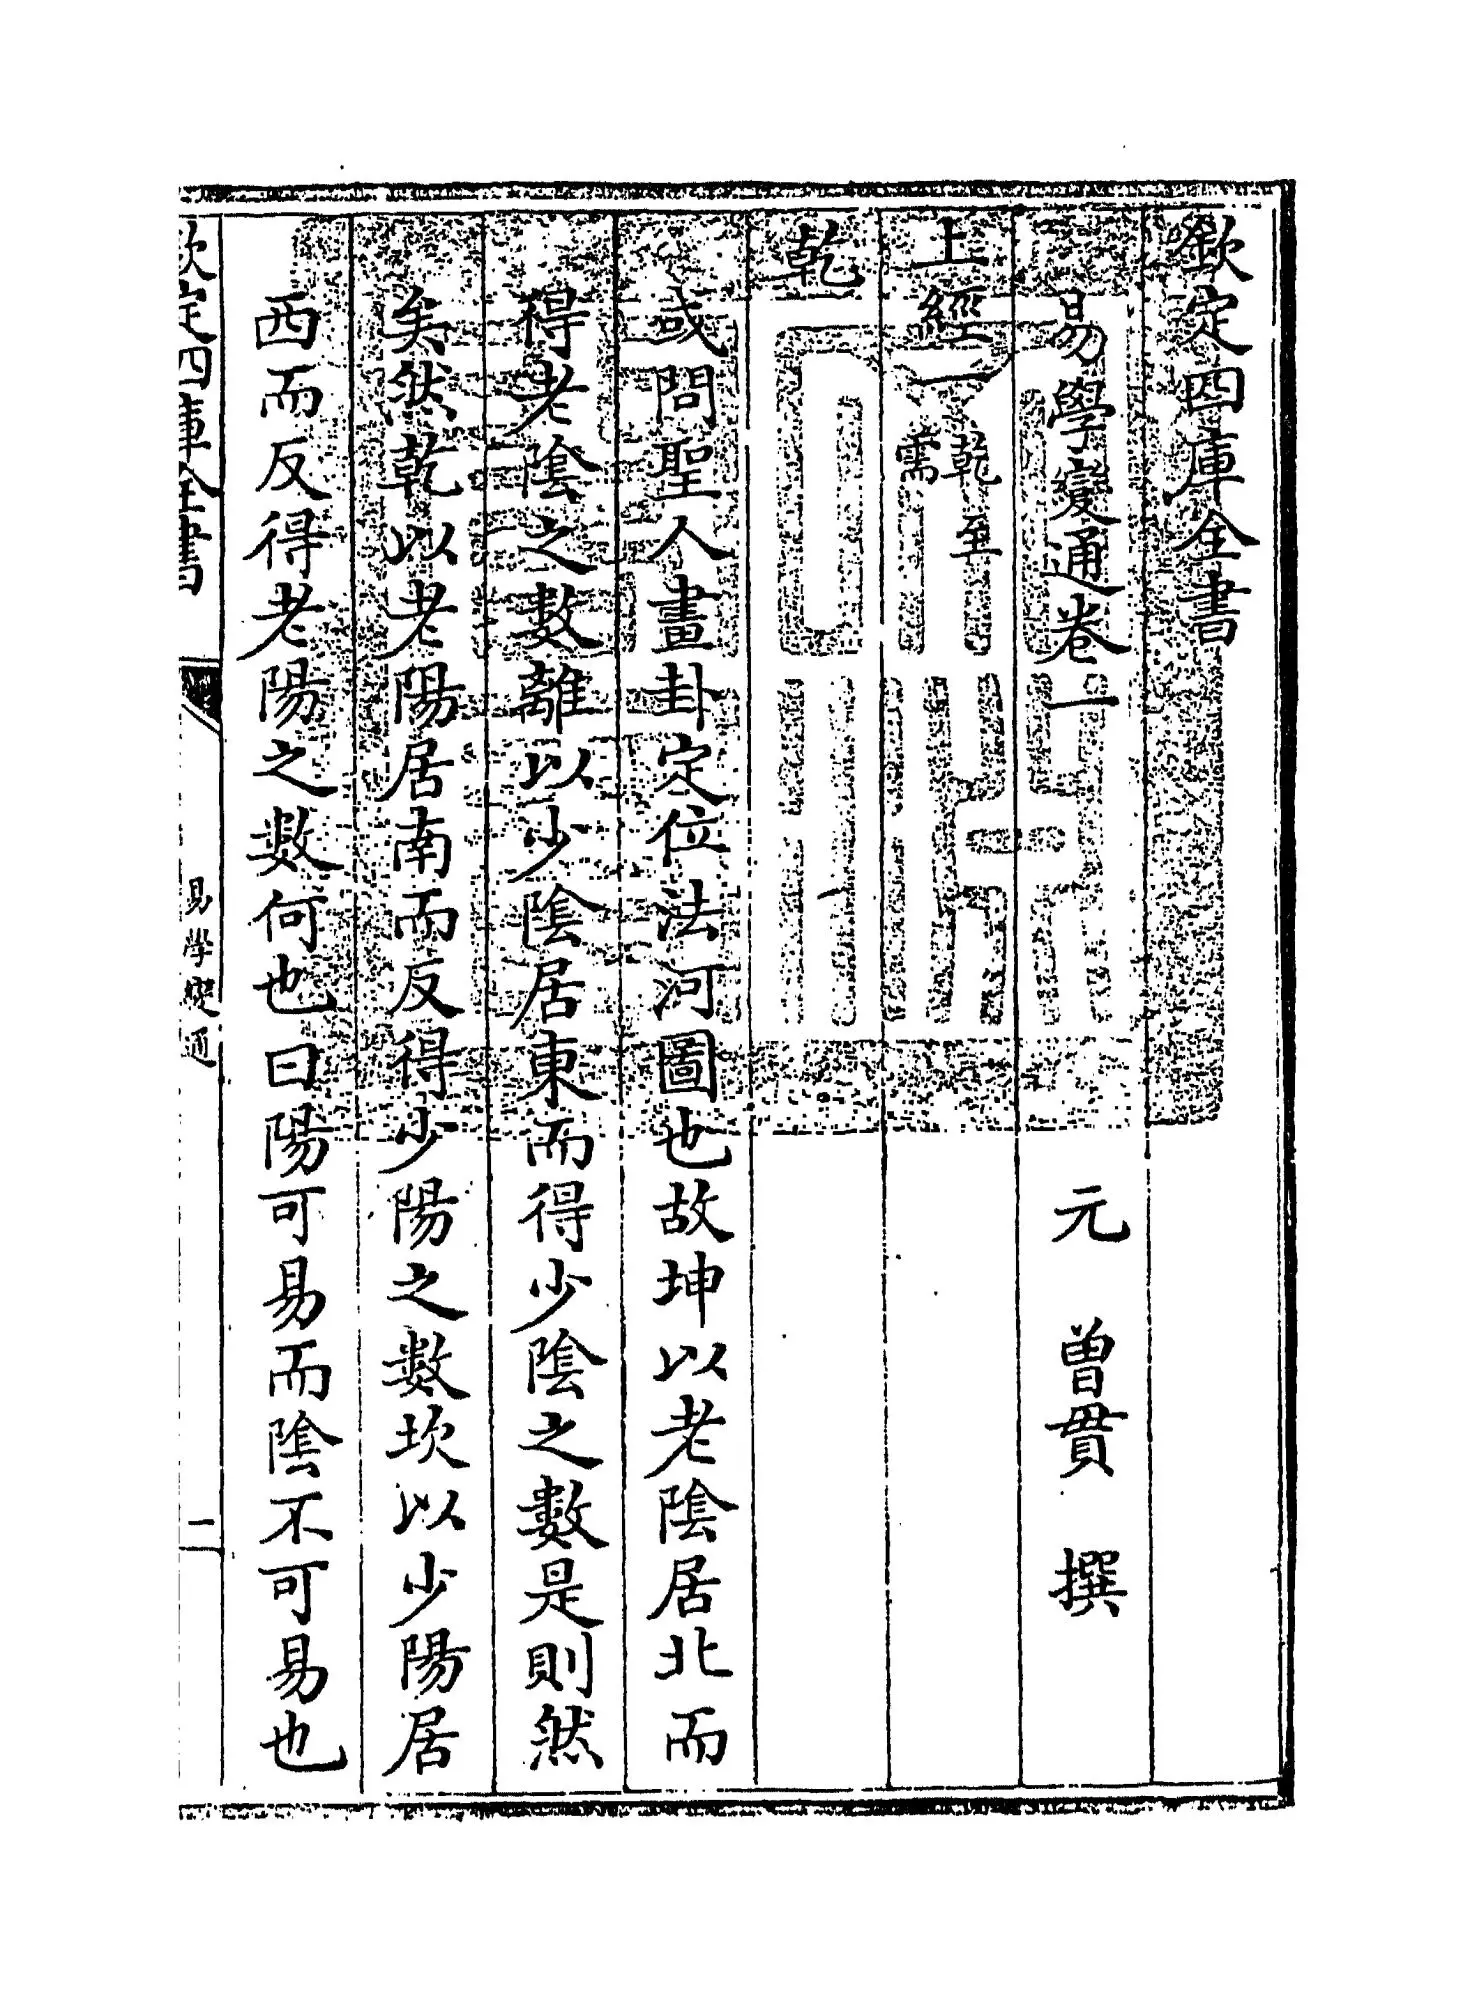 欽定四庫全書
易學變通卷一　元　曾貫　撰
上經一乾至需
乾
或問聖人畫卦定位法河圖也故坤以老陰居北而
得老陰之數離以少陰居東而得少陰之數是則然
矣然乾以老陽居南而反得少陽之數坎以少陽居
西而反得老陽之數何也曰陽可易而陰不可易也
欽定四庫全書　易學變通　二